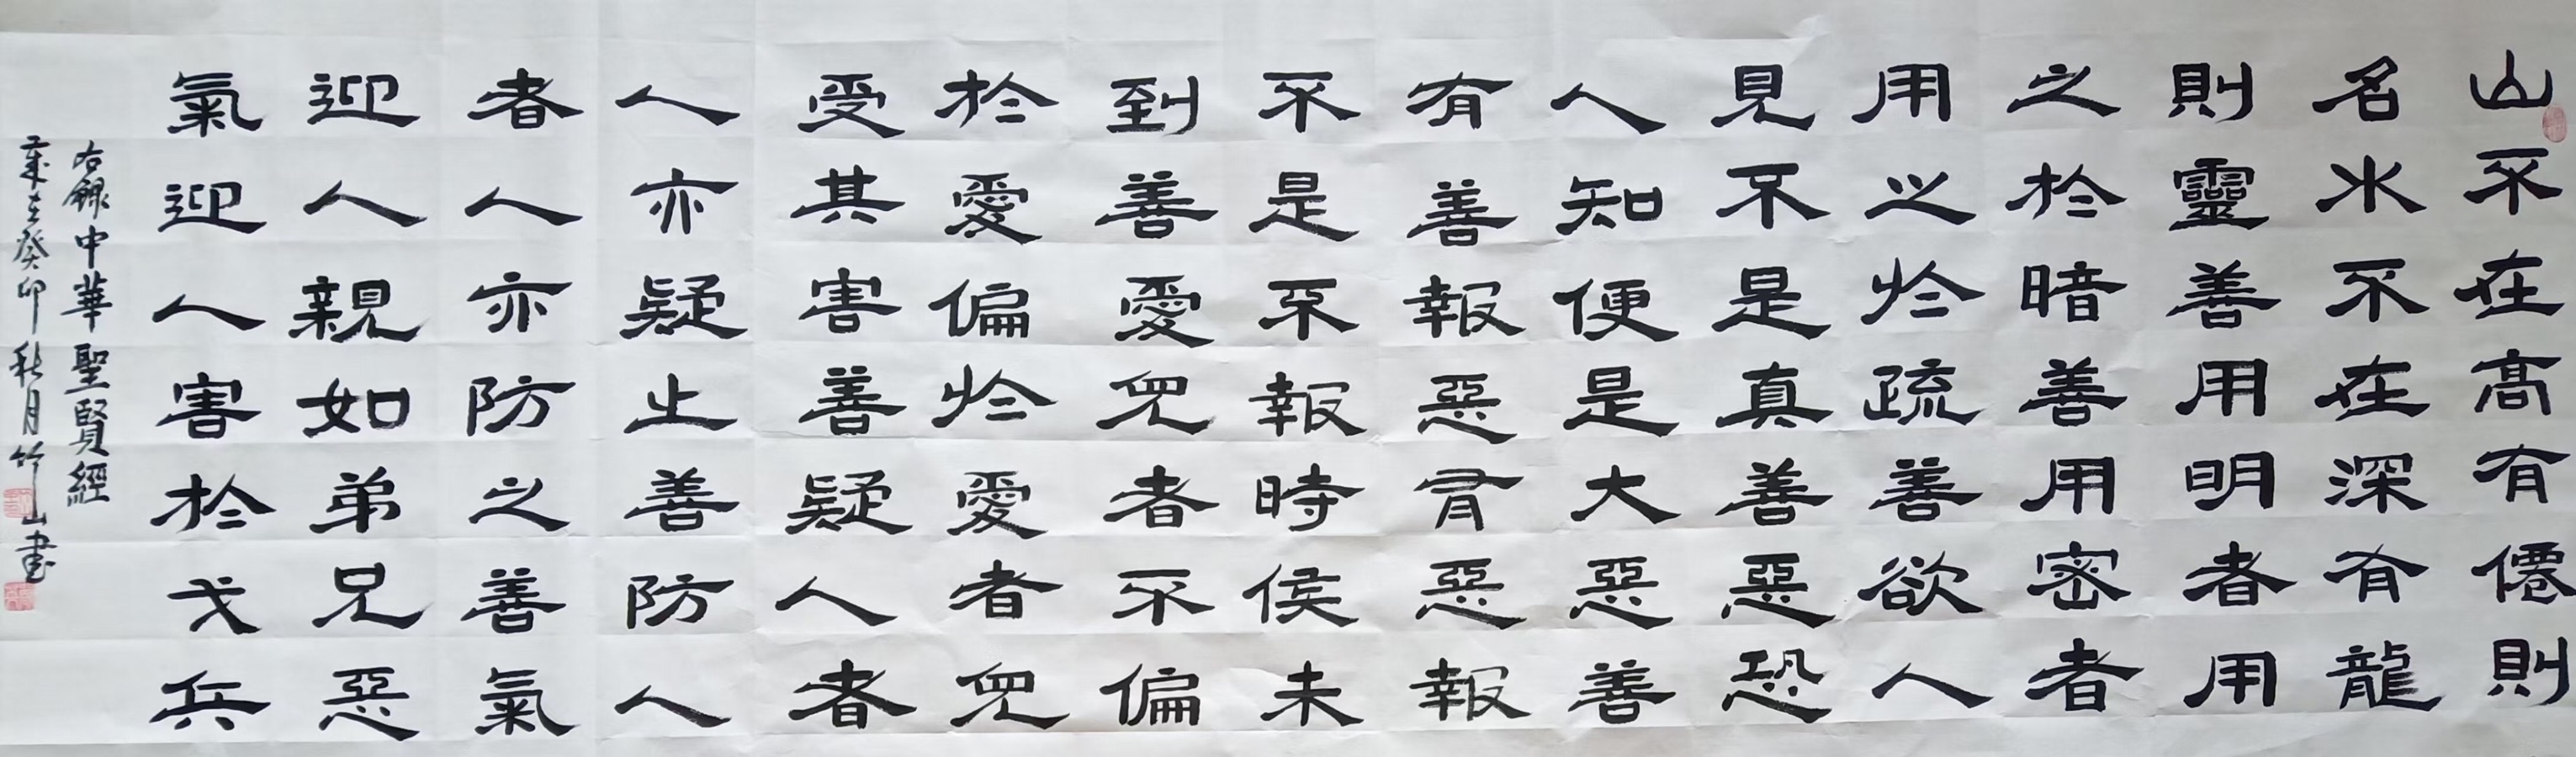 山不在高有僊則
名水不在深有龍
則靈善用明者用
之於暗善用密者
用之於疏善欲人
見不是真善惡恐
人知便是大惡善
有善報惡有惡報
不是不報時侯未
到善愛兒者不偏
於愛偏於愛者兒
受其害善疑人者
人亦疑止善防人
者人亦防之善氣
迎人親如弟兄惡
氣迎人害於戈兵
右錄中華聖賢經
歲在癸卯秋月竹山書